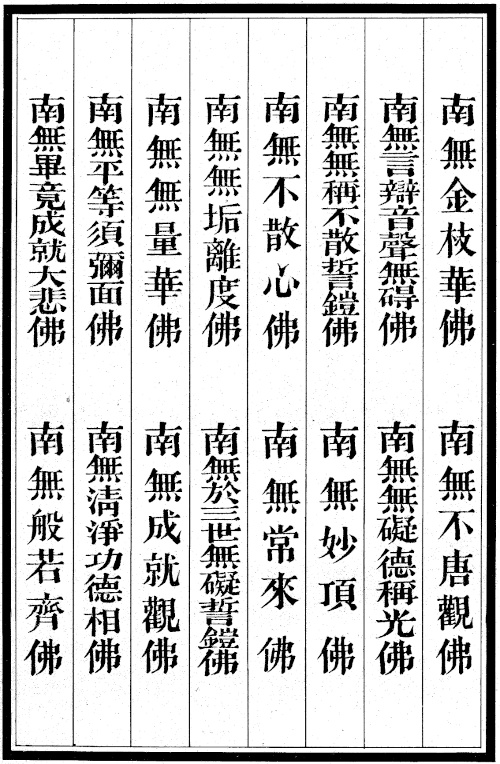 南無金枝華佛
南無不唐觀佛
南無言辯音聲無碍佛
南無無礙德稱光佛
南無無稱不散誓鎧佛
南無妙頂佛
南無不散心佛
南無常來佛
南無無垢離度佛
南無於三世無礙誓鎧佛
南無無量華佛
南無成就觀佛
南無平等須彌面佛
南無清淨功德相佛
南無畢竟成就大悲佛
南無般若齊佛